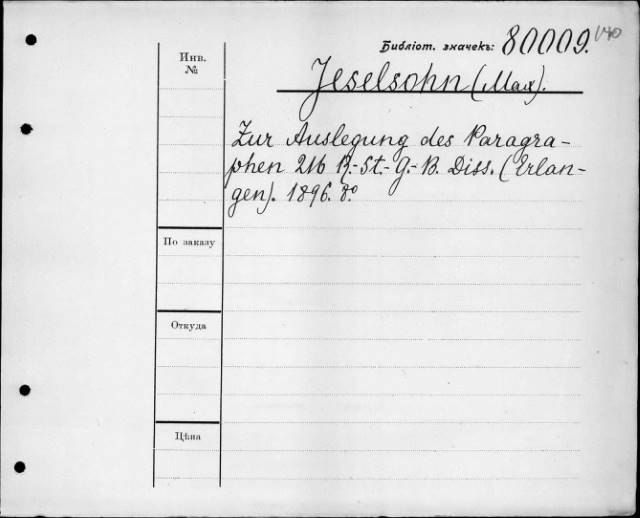 Библіот. значекъ: 80009. V40
Инв.
№
Jeselsohn (Max).
Zur Auslegung des Paragra-
phen 216 R.-St.-G.-B. Diss. (Erlan-
gen). 1896. 8°
По заказу
Откуда
Цѣна